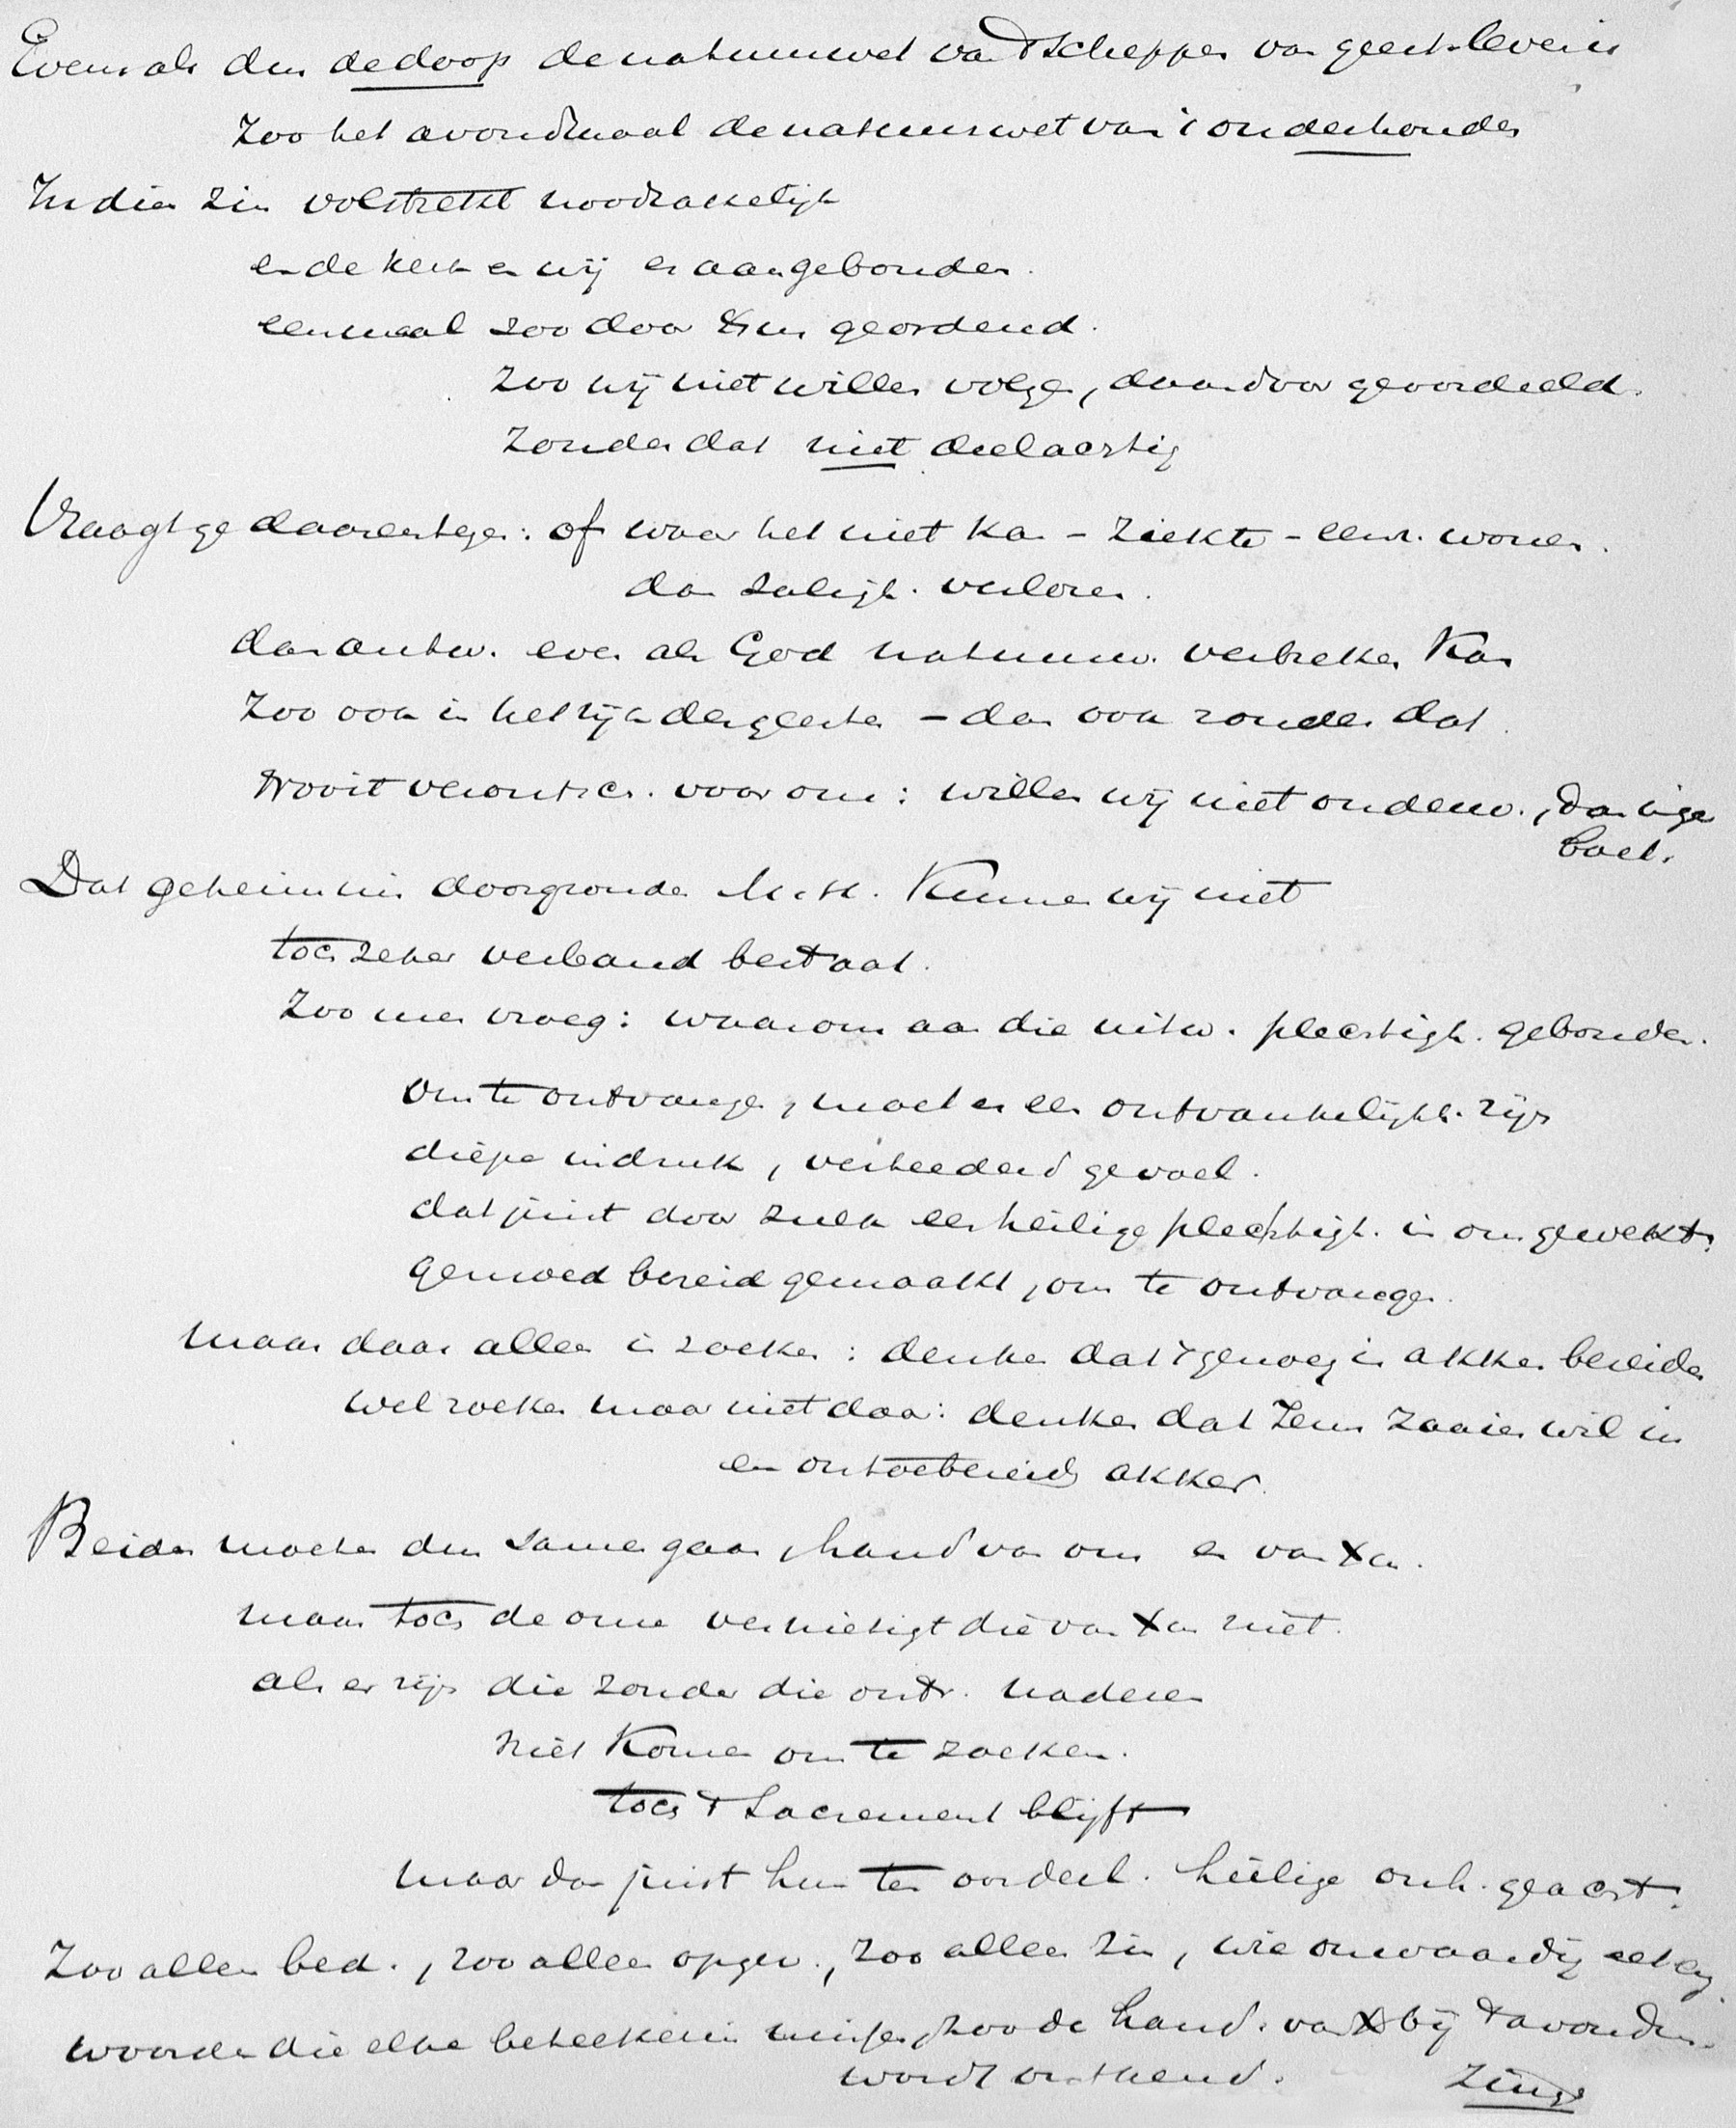 Evenals dus de doop de natuurwet van 't scheppen van geest. leven is
Zoo het avondmaal de natuurwet van 't onderhouden
In dien zin volstrekt noodzakelijk
en de kerk en wij er aan gebonden.
eenmaal zoo door geordend.
Zoo wij niet willen volgen, daardoor geoordeeld.
Zonder dat niet deelachtig
Vraagt ge daarentegen: of waar het niet kan – ziekte – eenz. wonen.
dan zaligh. verloren.
dan antw. even als God natuurw. verbreken kan
Zoo ook in het rijk der geesten – dan ook zonder dat.
Nooit verontsch. voor ons: willen wij niet onderw., dan
Dat geheimnis doorgronden M. H. kunnen wij niet
toch zeker verband bestaat.
Zoo men vroeg: waarom aan die uitw. plechtigh. gebonden.
Om te ontvangen, moet er een ontvankelijkh. zijn
diepe indruk, verteederd gevoel.
dat juist door zulk een heilige plechtigh. in ons gewekt,
gemoed bereid gemaakt, om te ontvangen.
Maar daar alleen in zoeken: denken dat 't genoeg is akker bereiden
wel zoeken maar niet daar: denken dat Jezus zaaien wil in
een ontoebereiden akker.
Beiden moeten dus samengaan, hand van ons en van X en.
maar toch de onze vernietigt die van X en niet.
als er zijn die zonder die ontv. naderen
niet komen om te zoeken.
toch 't Sacrament blijft
maar dan juist hun ten oordeel. heilige onh. geacht.
Zoo alleen bed., zoo alleen opgev., zoo alleen zin, wie onwaardig eet en
woorden die elke beteekenis missen, zoo de hand. van X bij 't avondm.
wordt ontkend. Zingt